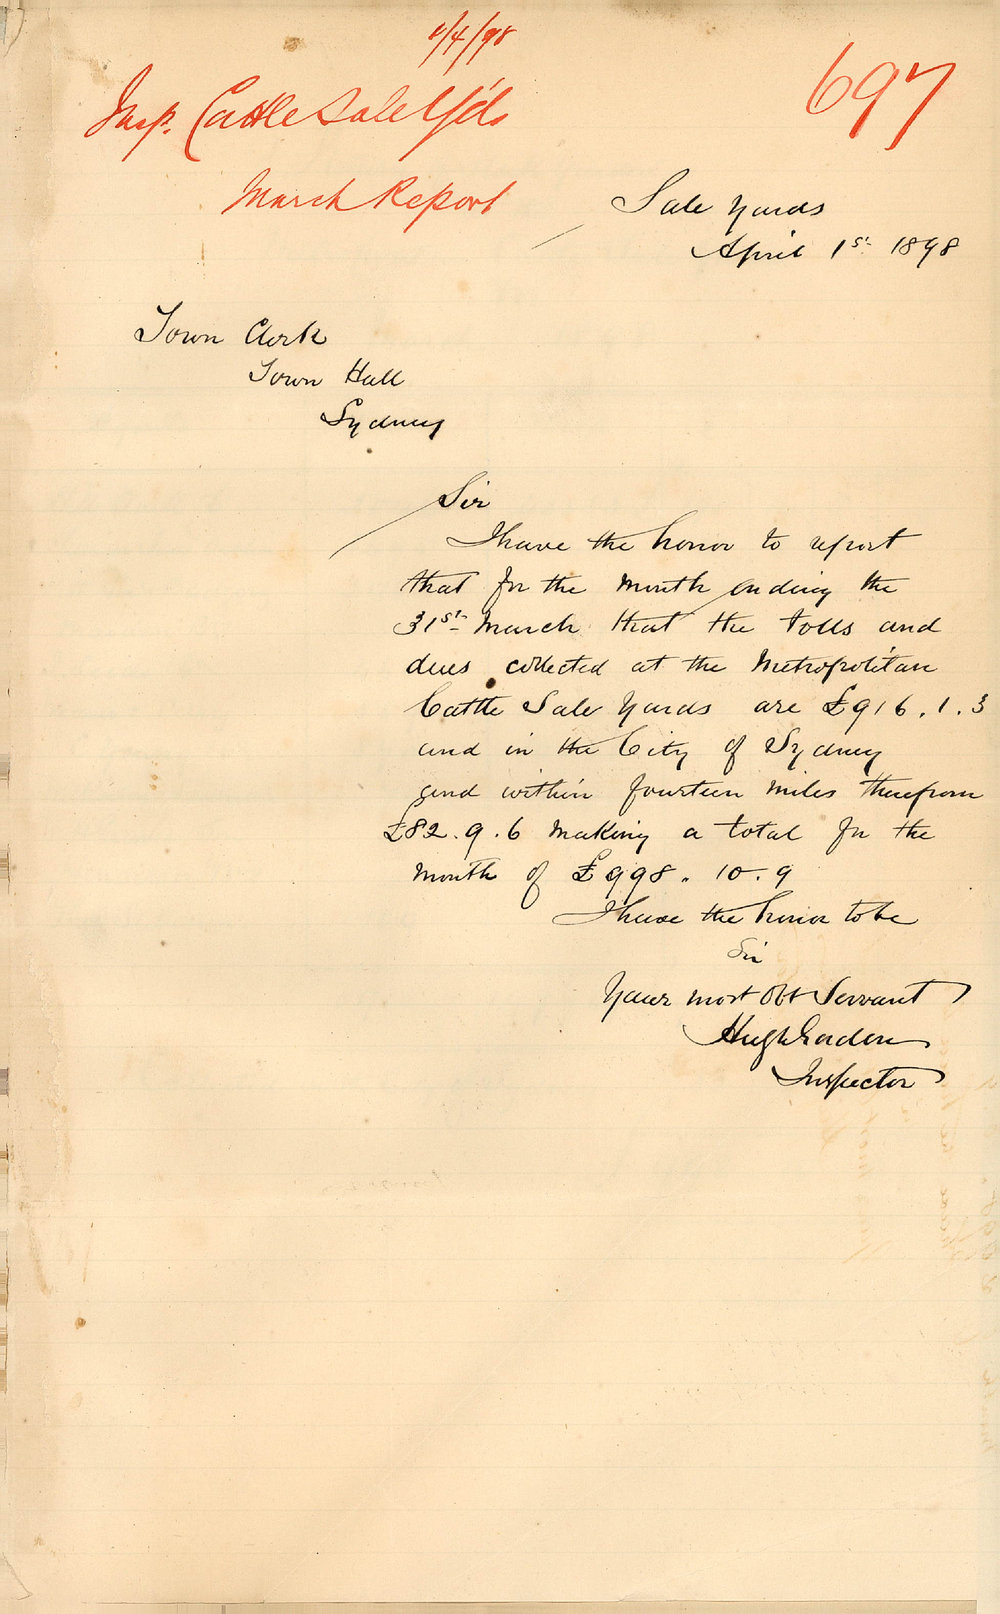 1/4/98
697
Insp. Cattle Sale Y'ds
March Report
Sale Yards
April 1st 1898
Town Clerk
Town Hall
Sydney
Sir
I have the honor to report
that for the month ending the
31st March that the tolls and
dues collected at the Metropolitan
Cattle Sale Yards are £916.1.3
and in the City of Sydney
and within fourteen miles therefrom
£82.9.6 making a total for the
month of £998.10.9
I have the honor to be
Sir
Your most Obt Servant
Hugh Gordon
Inspector